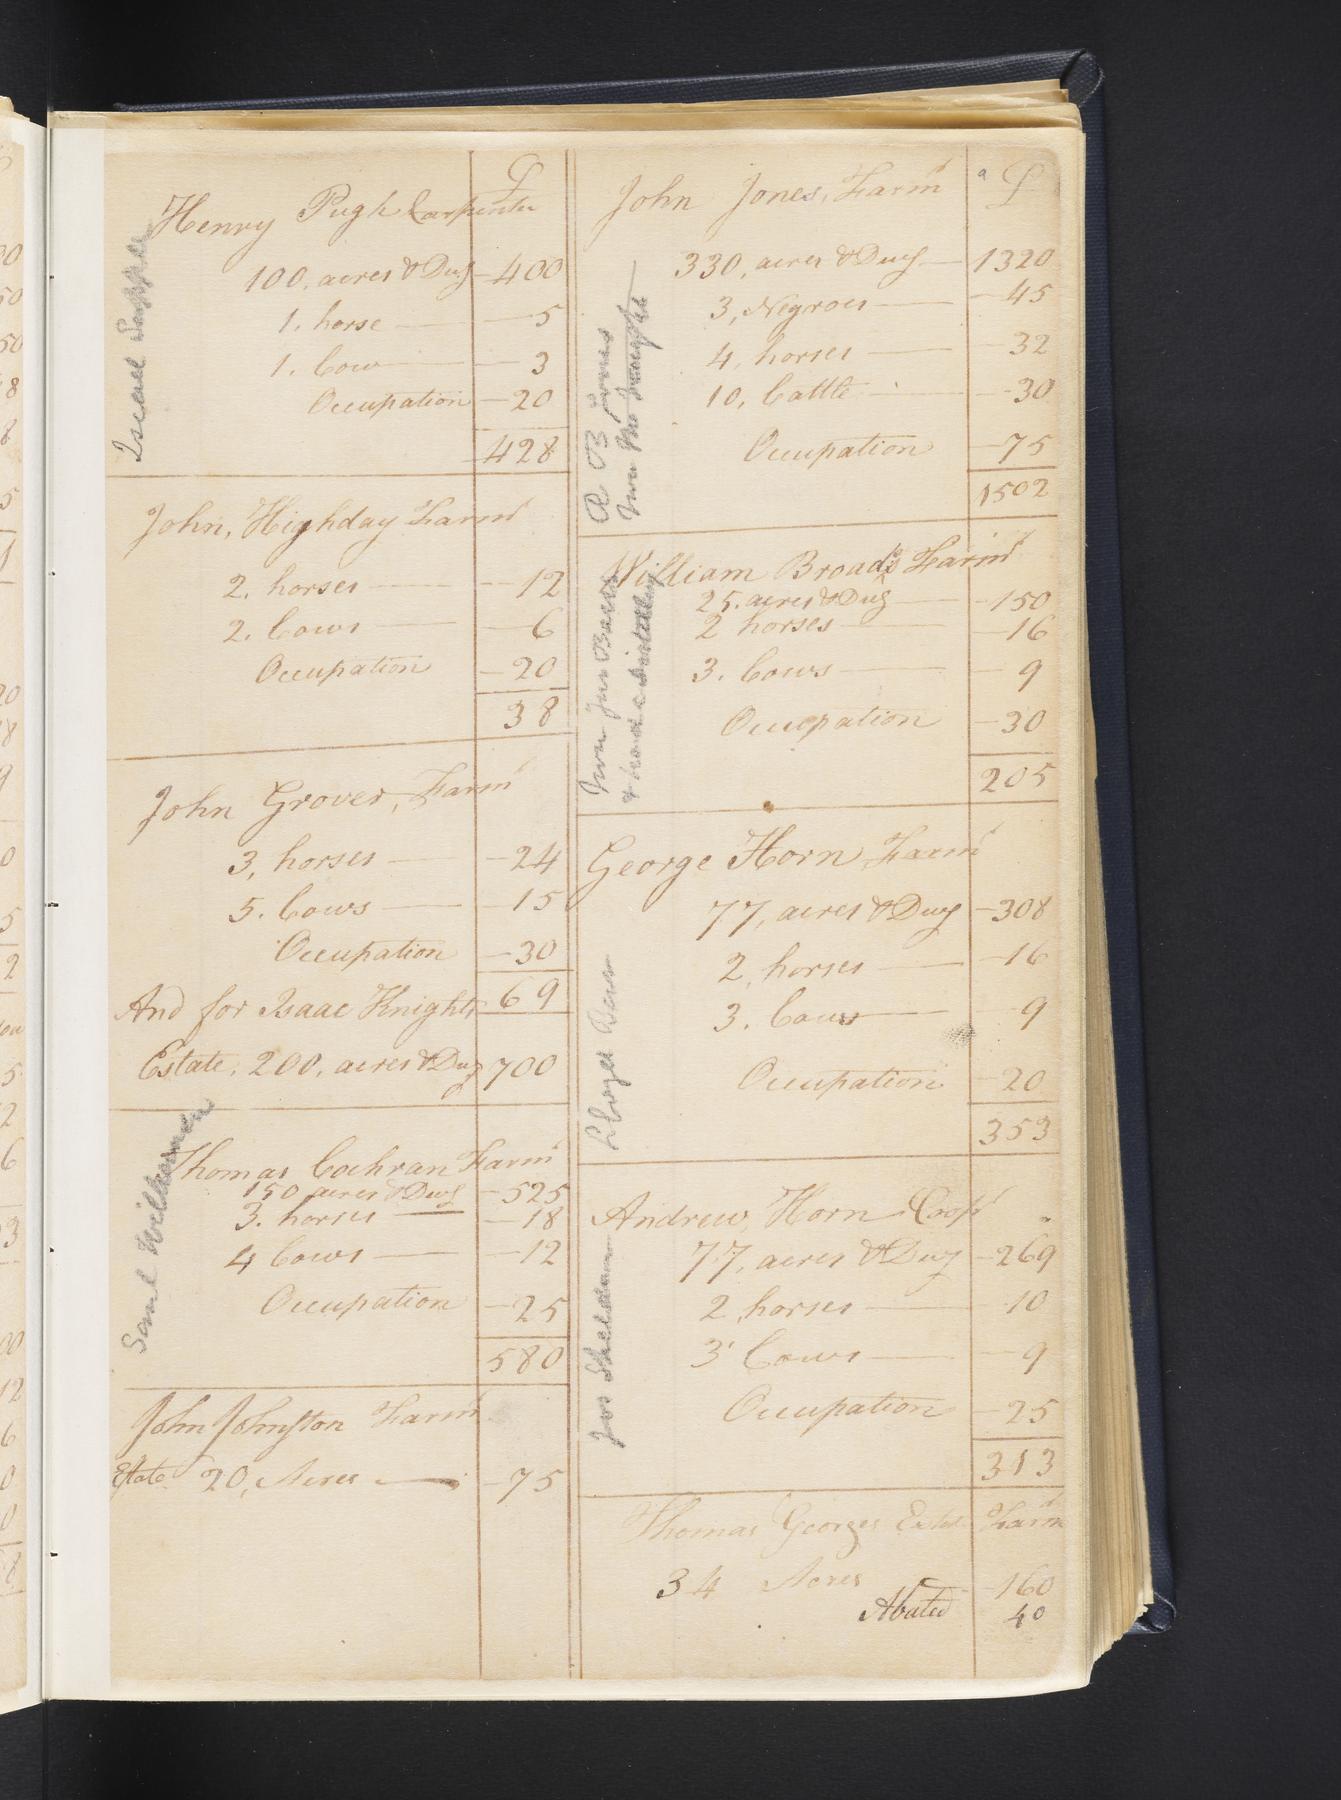 £
Henry Pugh Carpenter
100, acres & Dwg 400
1. horse 5
1. Cow 3
Occupation 20
428
John, Highday Farmr
2. horses 12
2. Cows 6
Occupation 20
38
John Grover, Farmr
3, horses 24
5. Cows 15
Occupation 30
69
And for Isaac Knights
Estate, 200, acres & Dwg 700
Saml Williamson
Thomas Cochran Farmr
150 acres & Dwg 525
3. horses 18
4 Cows 12
Occupation 25
580
John Johnston Farmr
Estate 20, Acres 75
a £
John Jones, Farmr
330, acres & Dwg 1320
3, Negroes 45
4, horses 32
10, Cattle 30
Occupation 75
1502
A B Jones
William Broads Farmr
25. acres & Dwg 150
2 horses 16
3. Cows 9
Occupation 30
205
George Horn Farmr
77, acres & Dwg 308
2, horses 16
3. Cows 9
Occupation 20
353
Andrew Horn Coopr
77, acres & Dwg 269
2 horses 10
3 Cows 9
Occupation 25
313
Thomas Georges Farmr
34 Acres 160
Abated 40